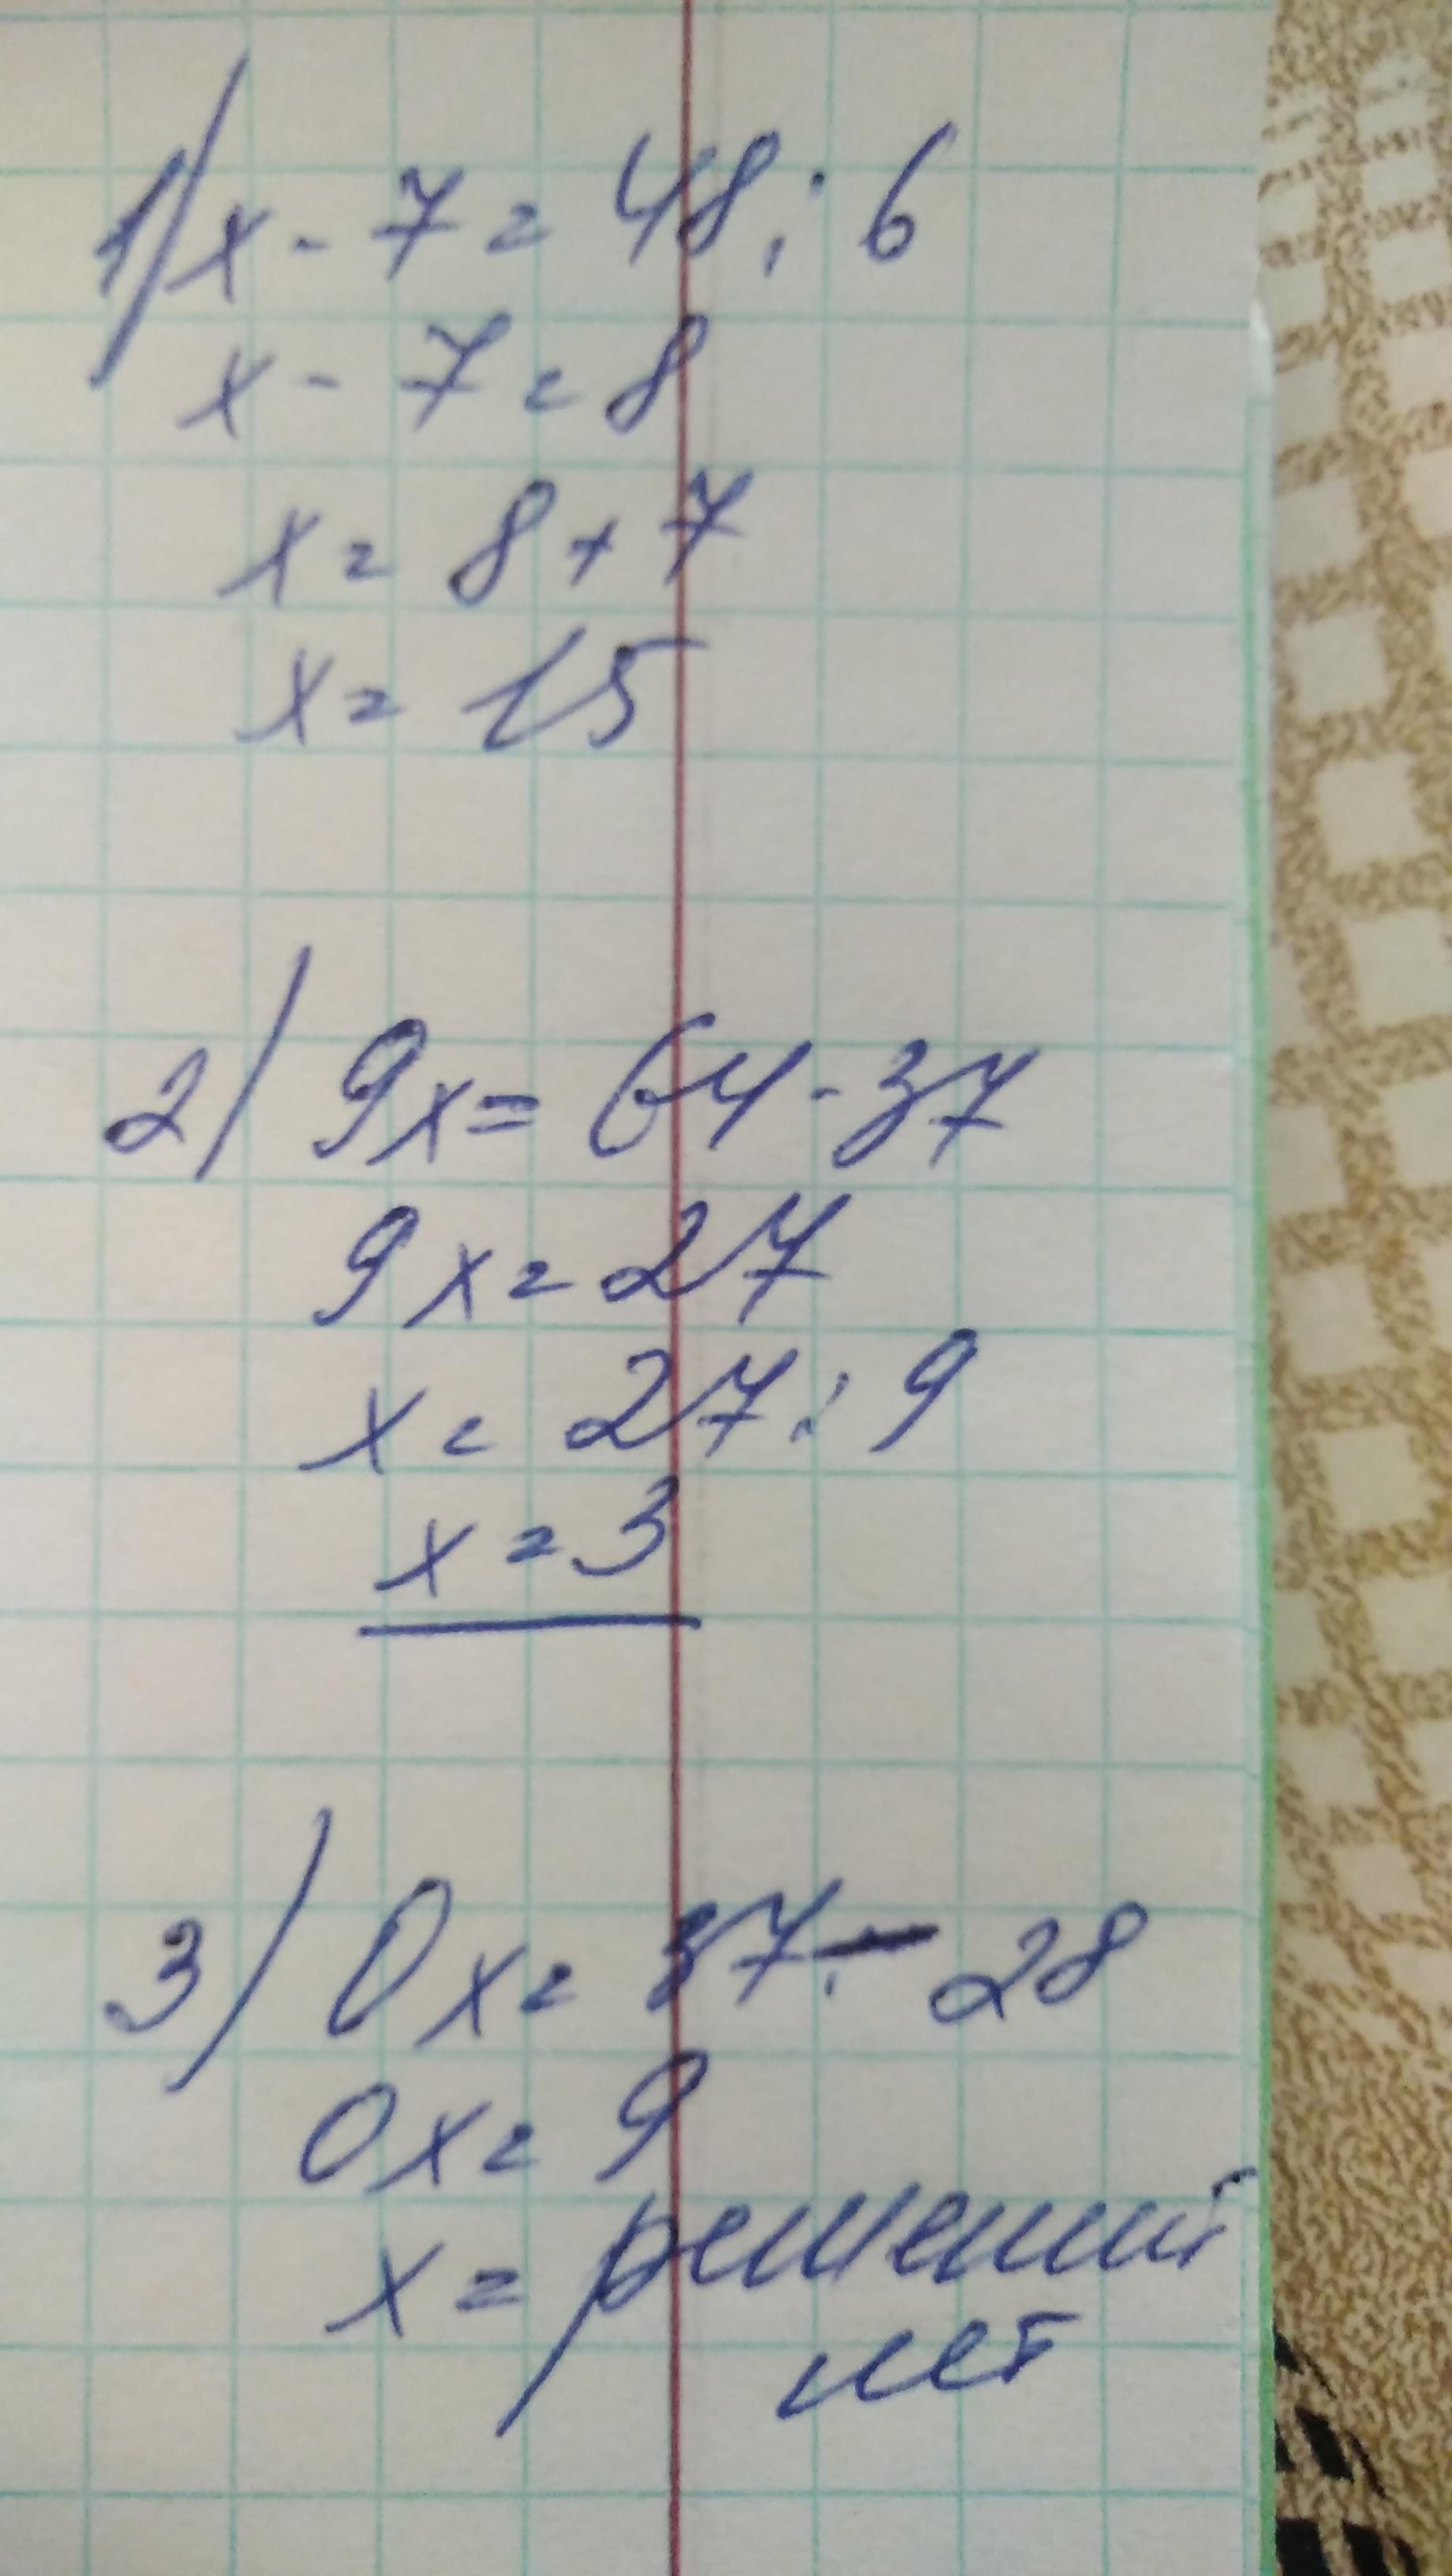 1) x - 7 = 48 : 6
x - 7 = 8
x = 8 + 7
x = 15
2) 9x = 64 - 37
9x = 27
x = 27 : 9
x = 3
3) 0x = 37 - 28
0x = 9
x = решений
нет